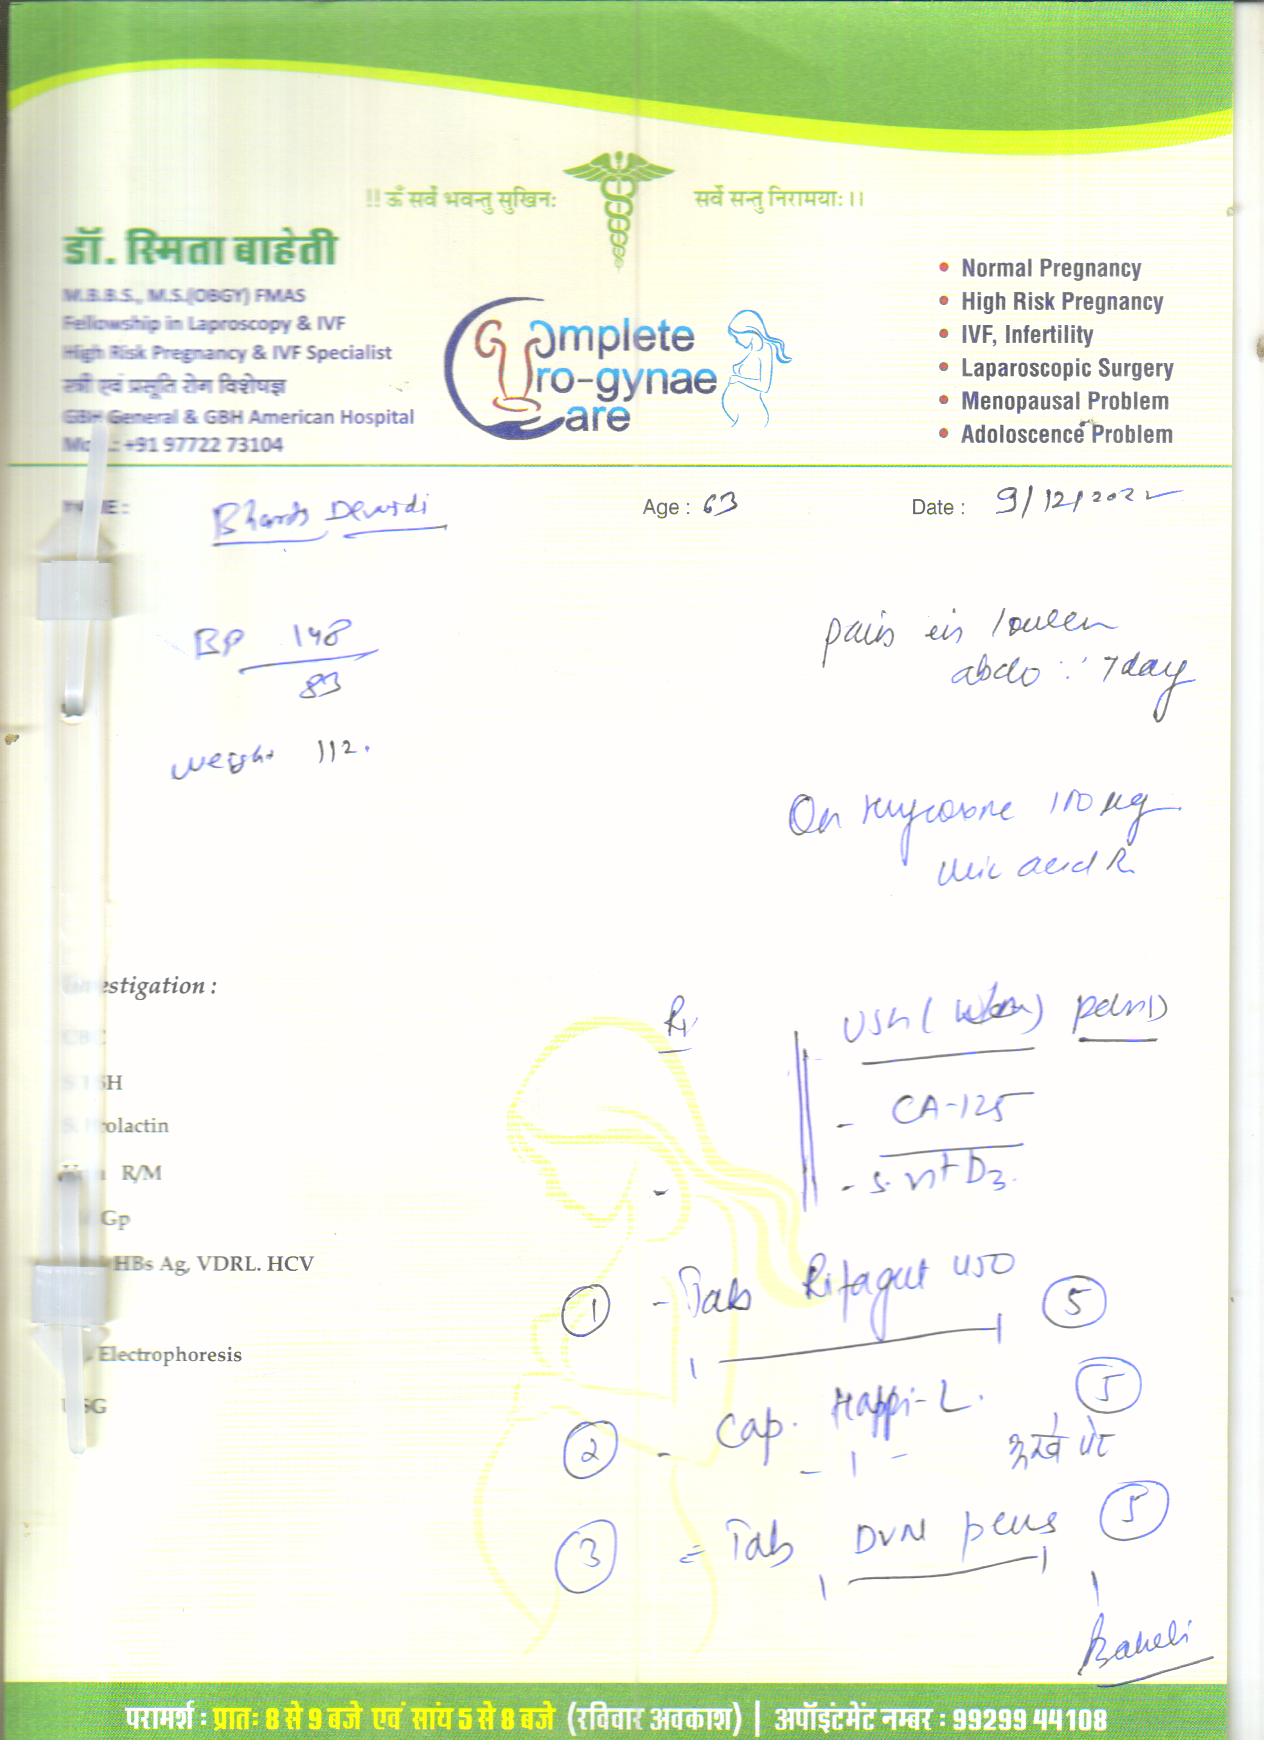 !! ॐ सर्वे भवन्तु सुखिनः सर्वे सन्तु निरामयाः ।।
डॉ. स्मिता बाहेती
M.B.B.S., M.S.(OBGY) FMAS
Fellowship in Laproscopy & IVF
High Risk Pregnancy & IVF Specialist
स्त्री एवं प्रसूति रोग विशेषज्ञ
GBH General & GBH American Hospital
+91 97722 73104
Complete
Uro-gynae
Care
• Normal Pregnancy
• High Risk Pregnancy
• IVF, Infertility
• Laparoscopic Surgery
• Menopausal Problem
• Adoloscence Problem
Age : 63
Date : 9/12/2022
BP 148
83
weight 112.
pain in lower
abdo 7day
On thyroxine 100 µg
uric acid
estigation :
CBC
SH
rolactin
R/M
Gp
HBs Ag, VDRL. HCV
Electrophoresis
SG
Rx
USG
- CA-125
- S. vit D3.
① - Tab Rifagut 400 ⑤
1 ——— 1
② - Cap. Happi-L. ⑤
- 1 - भूखे पेट
③ = Tab DVN ⑤
1 ——— 1
Baheti
परामर्श : प्रातः 8 से 9 बजे एवं सांय 5 से 8 बजे (रविवार अवकाश) | अपॉइंटमेंट नम्बर : 99299 44108